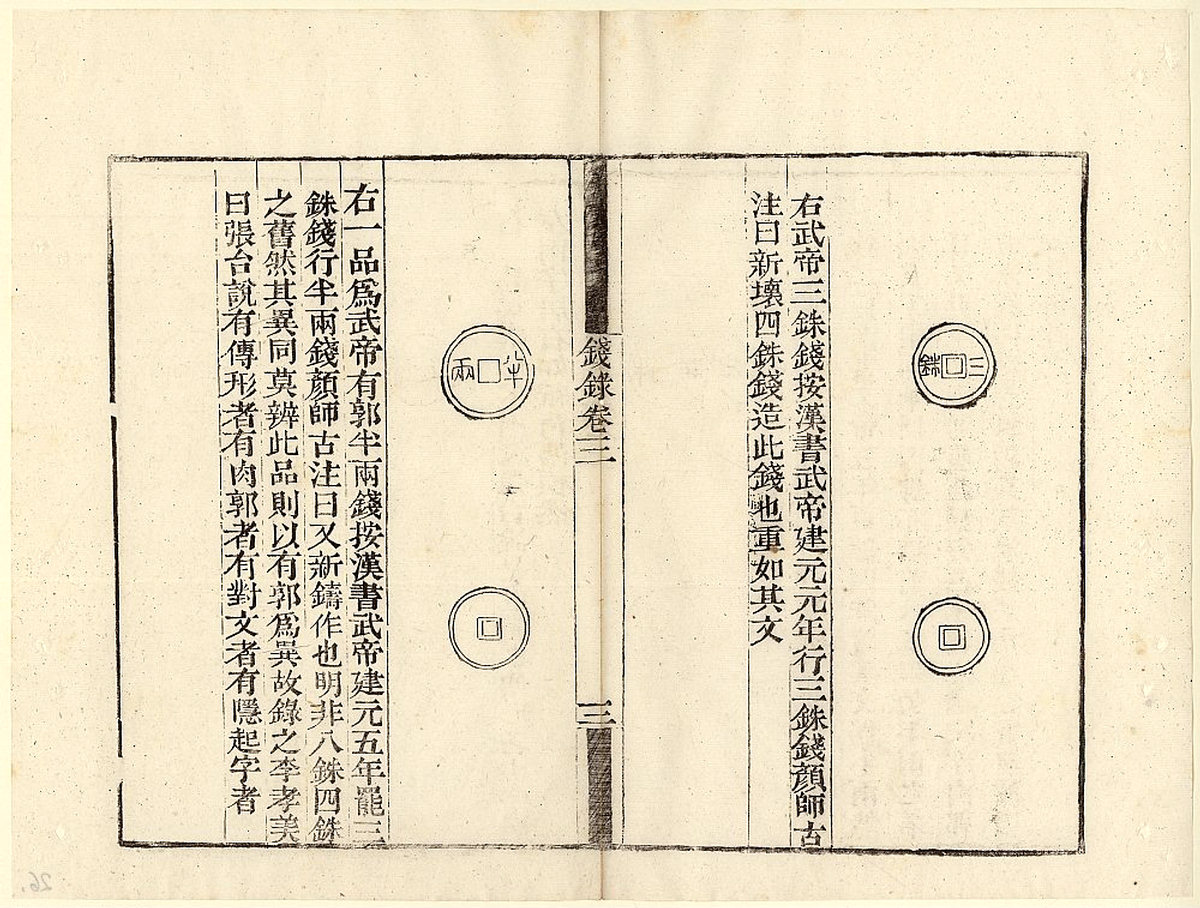 三銖
右武帝三銖錢按漢書武帝建元元年行三銖錢顏師古
注曰新壞四銖錢造此錢也重如其文
錢錄卷三
三
半兩
右一品爲武帝有郭半兩錢按漢書武帝建元五年罷三
銖錢行半兩錢顏師古注曰又新鑄作也明非八銖四銖
之舊然其異同莫辨此品則以有郭爲異故錄之李孝美
曰張台說有傳形者有肉郭者有對文者有隱起字者
26.